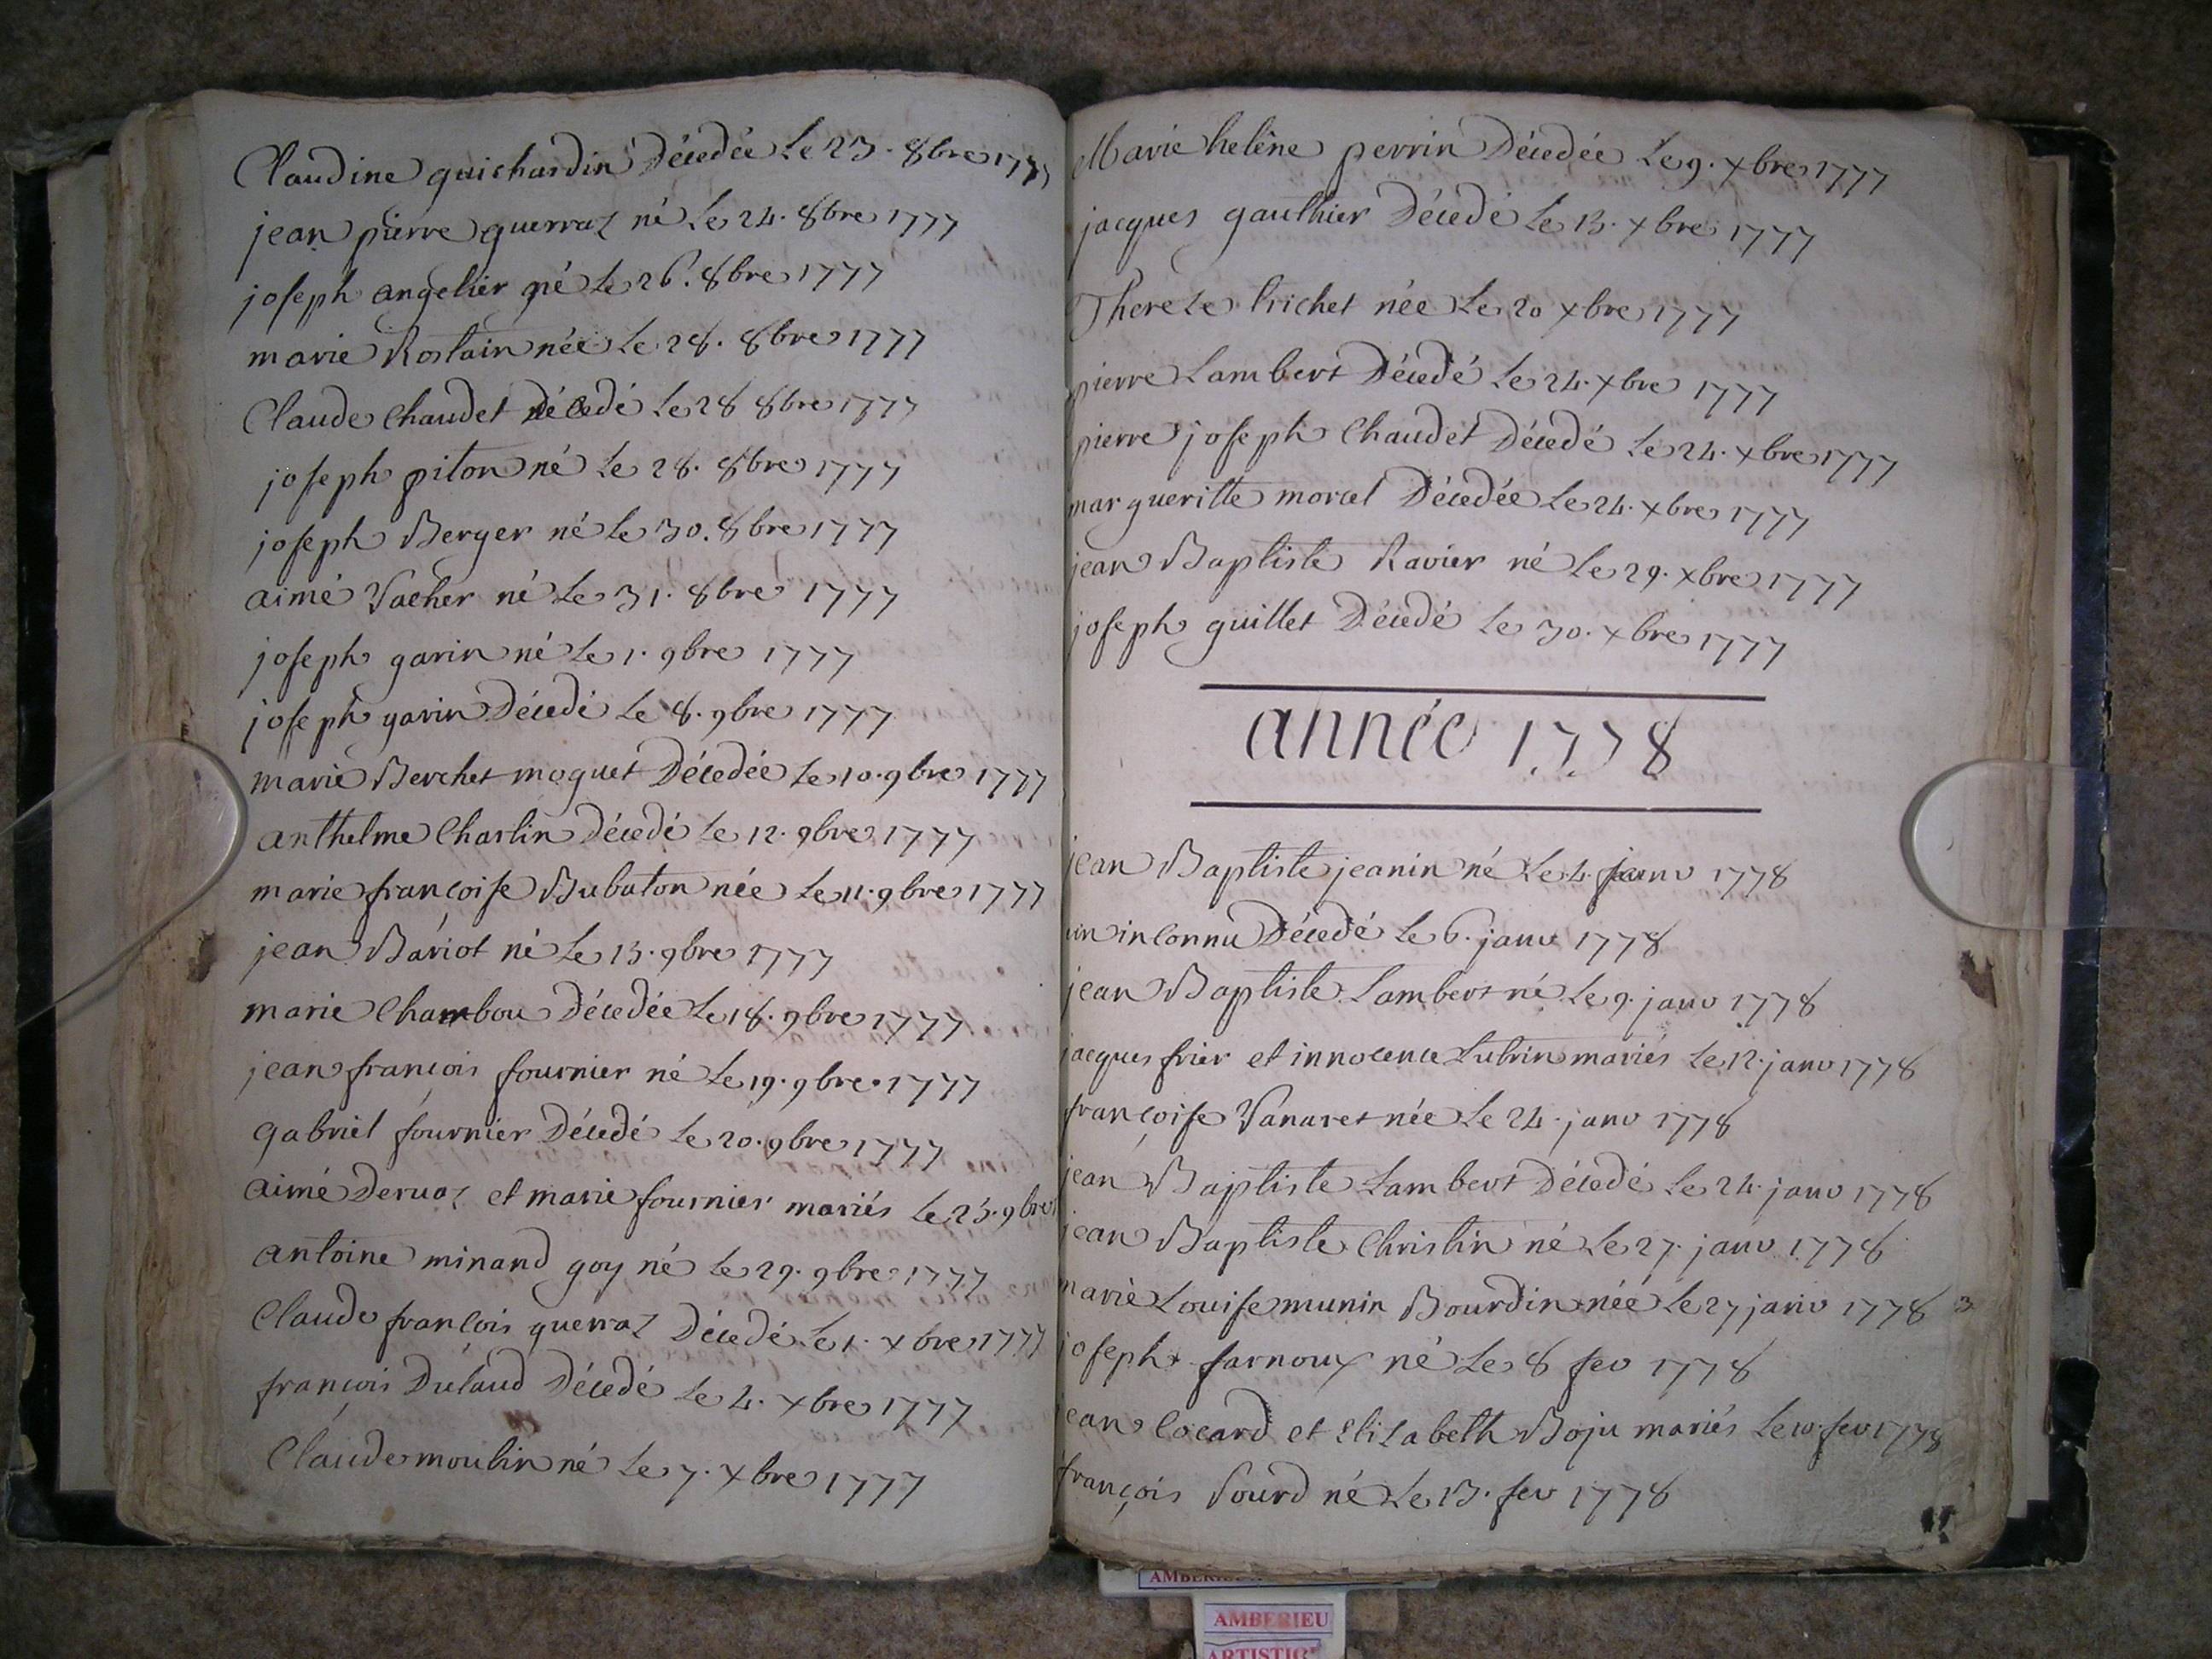 Claudine guichardin Décedée Le 23. 8bre 1777
jean pierre guerraz né Le 24. 8bre 1777
joseph angelier né Le 26. 8bre 1777
marie Rostain née Le 28. 8bre 1777
Claude Chaudet décedé Le 28 8bre 1777
joseph piton né Le 28. 8bre 1777
joseph Berger né Le 30. 8bre 1777
aimé Vacher né Le 31. 8bre 1777
joseph garin né Le 1. 9bre 1777
joseph garin Décedé Le 8. 9bre 1777
marie Berchet moguet Décedée Le 10. 9bre 1777
anthelme Charlin Décedé Le 12. 9bre 1777
marie françoise Bubaton née Le 11. 9bre 1777
jean Báriot né Le 13. 9bre 1777
marie Chambou Décedée Le 18. 9bre 1777
jean françois fournier né Le 19. 9bre 1777
gabriel fournier Décedé Le 20. 9bre 1777
aimé Deruaz et marie fournier mariés Le 25. 9bre
antoine minand goy né Le 29. 9bre 1777
Claude françois guerraz Décedé Le 1. xbre 1777
françois Dulaud Décedé Le 4. xbre 1777
Claude moulin né Le 7. xbre 1777
Marie helêne perrin Décedée Le 9. xbre 1777
jacques gauthier Décedé Le 13. xbre 1777
Therese trichet née Le 20 xbre 1777
pierre Lambert Décedé Le 24. xbre 1777
pierre joseph Chaudet Décedé Le 24. xbre 1777
margueritte morcel Décedée Le 24. xbre 1777
jean Baptiste Ravier né Le 29. xbre 1777
joseph guillet Décedé Le 30. xbre 1777
année 1778
jean Baptiste jeanin né Le 4. janv 1778
un inconnu Décedé Le 6. janv 1778
jean Baptiste Lambert né Le 9. janv 1778
jacques frier et innocence Lubrin mariés Le 12. janv 1778
françoise Vanaret née Le 24. janv 1778
jean Baptiste Lambert Décedé Le 24. janv 1778
jean Baptiste Christin né Le 27. janv 1778
marie Louise munin Bourdin née Le 27 janv 1778
joseph farnoux né Le 8 fev 1778
jean Cocard et Elizabeth Boju mariés Le 10. fev 1778
françois Sourd né Le 13. fev 1778
AMBERIEU
AMBERIEU